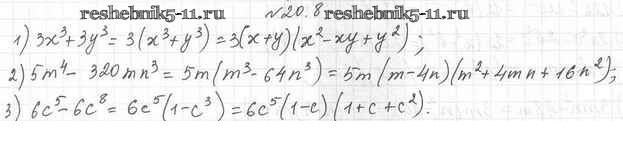 reshebnik5-11.ru №20.8 reshebnik5-11.ru
1) 3x³+3y³= 3(x³+y³)=3(x+y)(x²-xy+y²);
2) 5m⁴- 320mn³= 5m(m³-64n³)=5m(m-4n)(m²+4mn+16n²);
3) 6c⁵-6c⁸= 6c⁵(1-c³)=6c⁵(1-c)(1+c+c²).